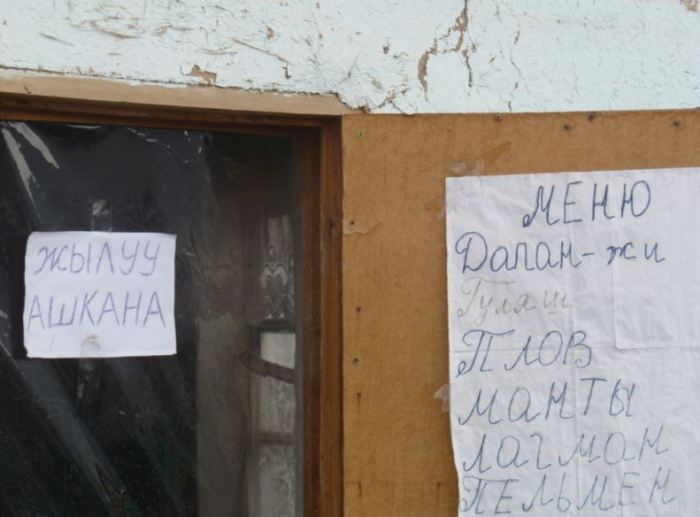 ЖЫЛУУ
АШКАНА
МЕНЮ
Дапан-жи
Гуляш
Плов
МАНТЫ
ЛАГМАН
ПЕЛЬМЕН